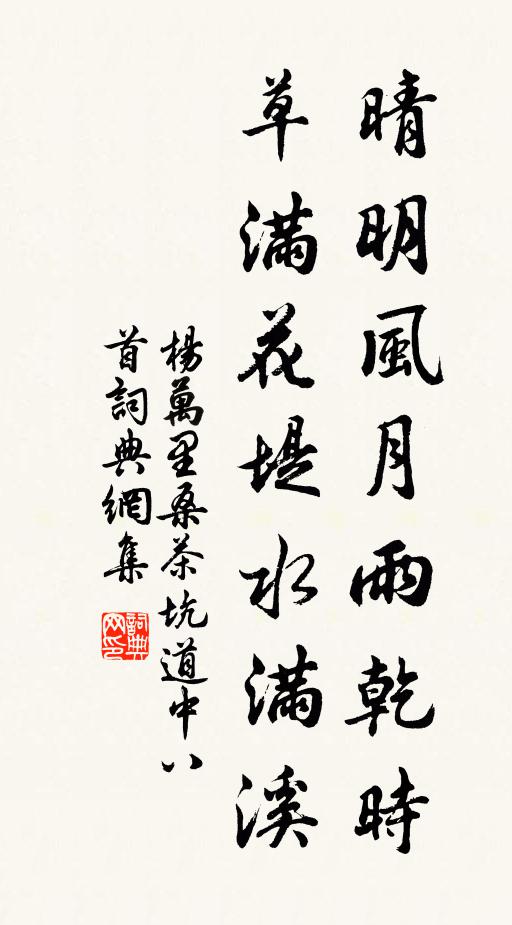 晴明風月雨乾時
草滿花堤水滿溪
楊萬里桑茶坑道中八
首詞典網集
詞典网印